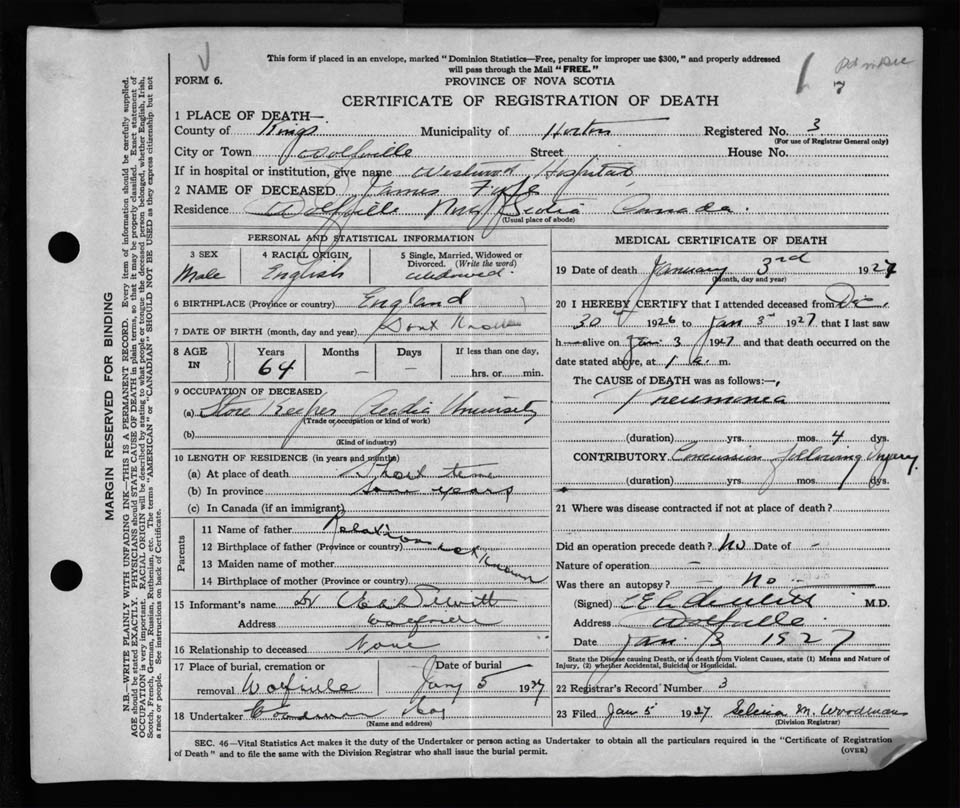 This form if placed in an envelope, marked "Dominion Statistics—Free, penalty for improper use $300," and properly addressed
will pass through the Mail "FREE."
FORM 6.
PROVINCE OF NOVA SCOTIA
7
CERTIFICATE OF REGISTRATION OF DEATH
1 PLACE OF DEATH—
County of Kings Municipality of Horton Registered No. 3
(For use of Registrar General only)
City or Town Wolfville Street House No.
If in hospital or institution, give name Westwood Hospital
2 NAME OF DECEASED James Fyfe
Residence Wolfville Nova Scotia Canada.
(Usual place of abode)
PERSONAL AND STATISTICAL INFORMATION
3 SEX
Male
4 RACIAL ORIGIN
English
5 Single, Married, Widowed or
Divorced. (Write the word)
widowed.
6 BIRTHPLACE (Province or country) England
7 DATE OF BIRTH (month, day and year) Dont Know
8 AGE IN
Years Months Days
64 — —
If less than one day,
hrs. or min.
9 OCCUPATION OF DECEASED
(a) Store Keeper Acadia University
(Trade or occupation or kind of work)
(b)
(Kind of industry)
10 LENGTH OF RESIDENCE (in years and months)
(a) At place of death Short time
(b) In province some years
(c) In Canada (if an immigrant)
Parents
11 Name of father Relations
12 Birthplace of father (Province or country) not known
13 Maiden name of mother
14 Birthplace of mother (Province or country)
15 Informant's name Dr DeWitt
Address Wolfville
16 Relationship to deceased None
17 Place of burial, cremation or Date of burial
removal Wolfville Jany 5 1927
18 Undertaker Woodman
(Name and address)
MEDICAL CERTIFICATE OF DEATH
19 Date of death January 3rd 1927
(Month, day and year)
20 I HEREBY CERTIFY that I attended deceased from Dec.
30 1926 to Jan 3rd 1927 that I last saw
h— alive on Jan. 3 1927 and that death occurred on the
date stated above, at 1 a. m.
The CAUSE OF DEATH was as follows:—
Pneumonia
(duration) yrs. mos. 4 dys.
CONTRIBUTORY Concussion following Injury.
(duration) yrs. mos. dys.
21 Where was disease contracted if not at place of death?
Did an operation precede death? No Date of –
Nature of operation –
Was there an autopsy? – No –
(Signed) DeWitt M.D.
Address Wolfville
Date Jan. 3 1927
State the Disease causing Death, or in death from Violent Causes, state (1) Means and Nature of
Injury, (2) whether Accidental, Suicidal or Homicidal.
22 Registrar's Record Number 3
23 Filed Jan 5 1927 Selina M. Woodman
(Division Registrar)
SEC. 46—Vital Statistics Act makes it the duty of the Undertaker or person acting as Undertaker to obtain all the particulars required in the "Certificate of Registration
of Death" and to file the same with the Division Registrar who shall issue the burial permit.
(OVER)
MARGIN RESERVED FOR BINDING
N.B.—WRITE PLAINLY WITH UNFADING INK—THIS IS A PERMANENT RECORD. Every item of information should be carefully supplied.
AGE should be stated EXACTLY. PHYSICIANS should STATE CAUSE OF DEATH in plain terms, so that it may be properly classified. Exact statement of
OCCUPATION is very important. RACIAL ORIGIN will be described by stating to what people or tongue the deceased person belonged, whether English, Irish,
Scotch, French, German, Russian, Ruthenian, etc. The terms "AMERICAN" or "CANADIAN" SHOULD NOT BE USED as they express citizenship but not
a race or people. See instructions on back of Certificate.